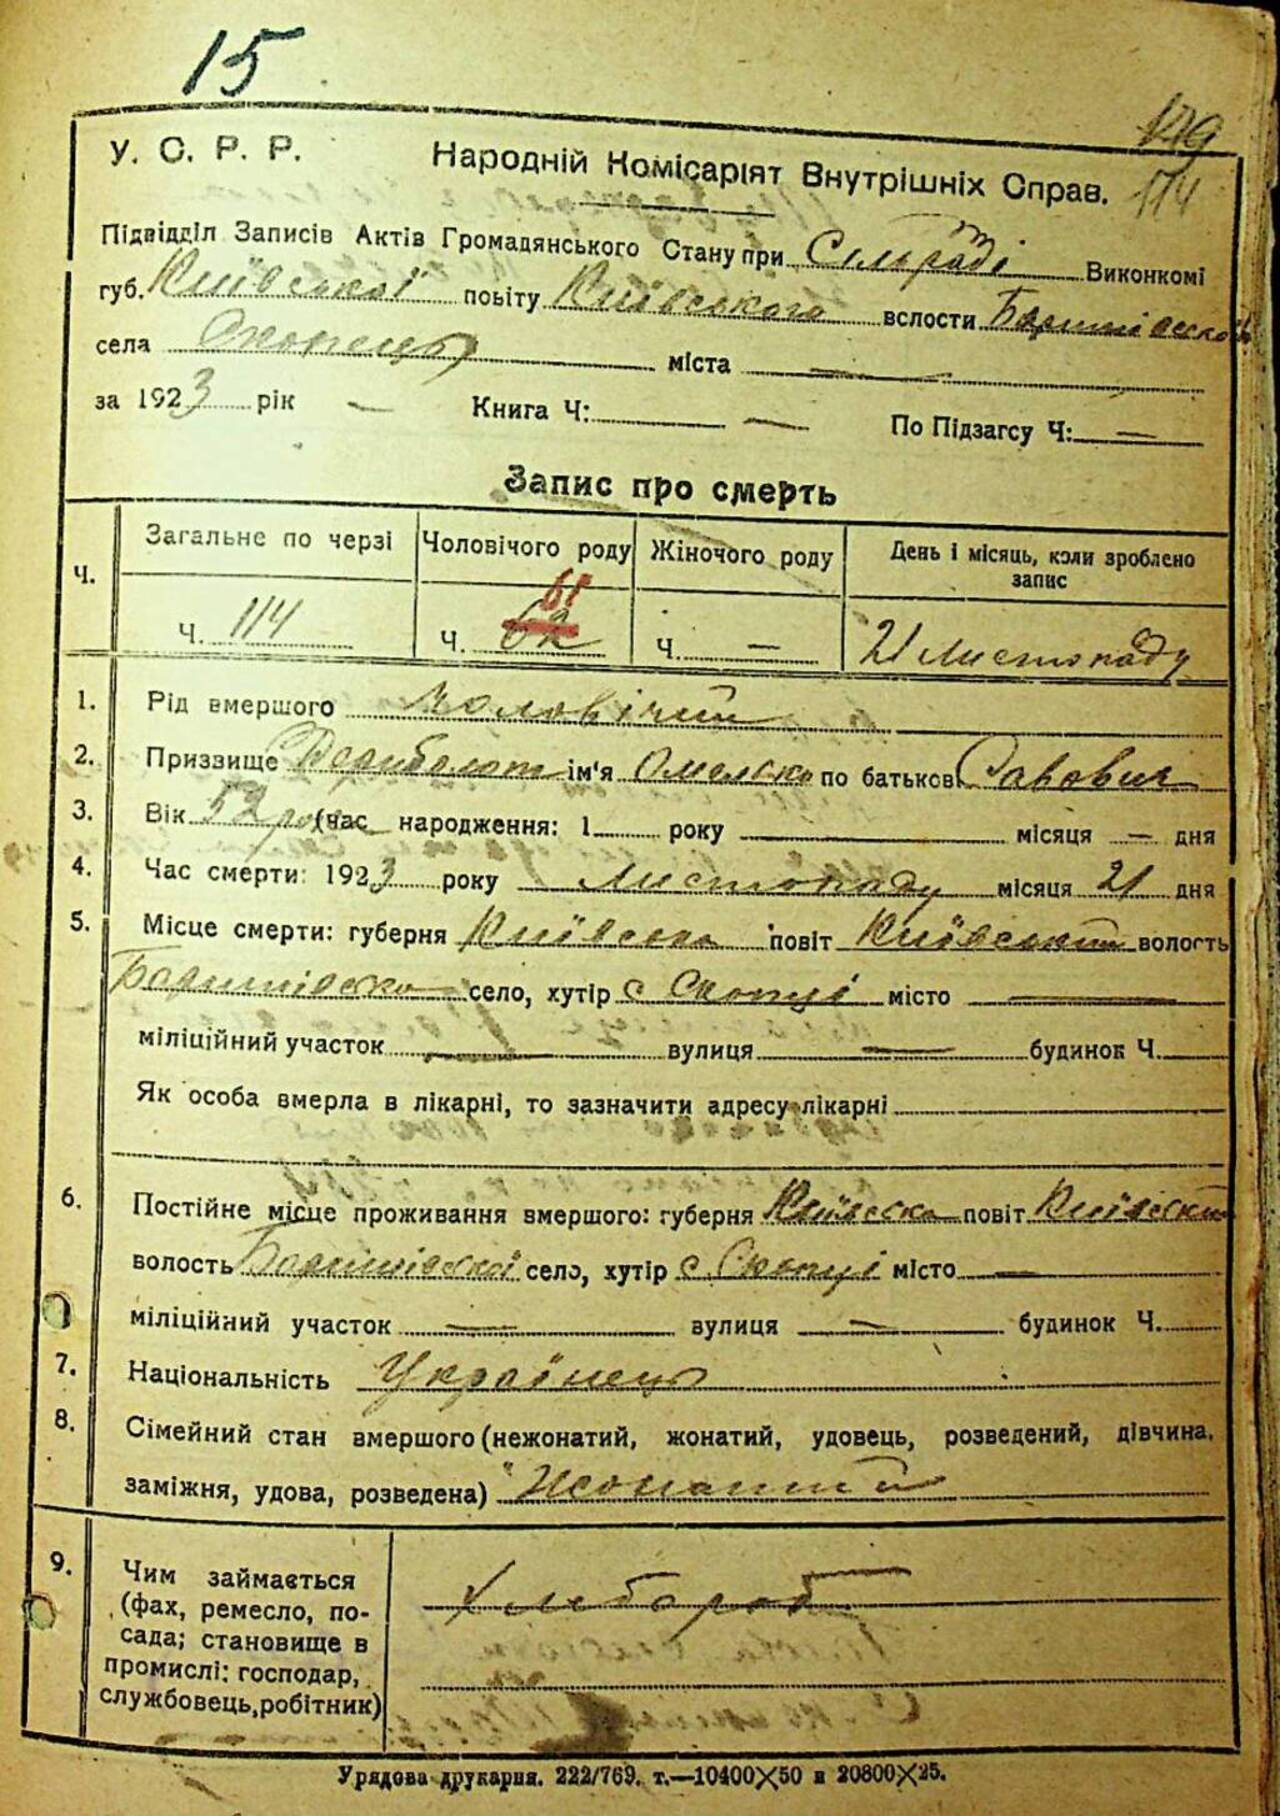 15
119
114
У. С. Р. Р. Народній Комісаріят Внутрішніх Справ.
Підвідділ Записів Актів Громадянського Стану при Сільраді Виконкомі
губ. Київської повіту Київського волости Баришівської
села Скопець міста —
за 1923 рік — Книга Ч: — По Підзагсу Ч: —
Запис про смерть
Ч. Загальне по черзі Чоловічого роду Жіночого роду День і місяць, коли зроблено запис
61
Ч. 114 Ч. 62 Ч. — 21 Листопаду
1. Рід вмершого Чоловічий
2. Призвище Дериболот ім'я Омелько по батькові Савович
3. Вік 52 роки (час народження: 1 року місяця — дня
4. Час смерти: 1923 року Листопаду місяця 21 дня
5. Місце смерти: губерня Київська повіт Київський волость
Баришівська село, хутір с Скопці місто —
міліційний участок — вулиця — будинок Ч.
Як особа вмерла в лікарні, то зазначити адресу лікарні
6. Постійне місце проживання вмершого: губерня Київська повіт Київський
волость Баришівської село, хутір с. Скопці місто —
міліційний участок — вулиця — будинок Ч.
7. Національність Українець
8. Сімейний стан вмершого (нежонатий, жонатий, удовець, розведений, дівчина,
заміжня, удова, розведена) Жонатий
9. Чим займається
(фах, ремесло, по-
сада; становище в
промислі: господар,
службовець, робітник)
Хлібороб
Урядова друкарня. 222/769. т.—10400×50 и 20800×25.